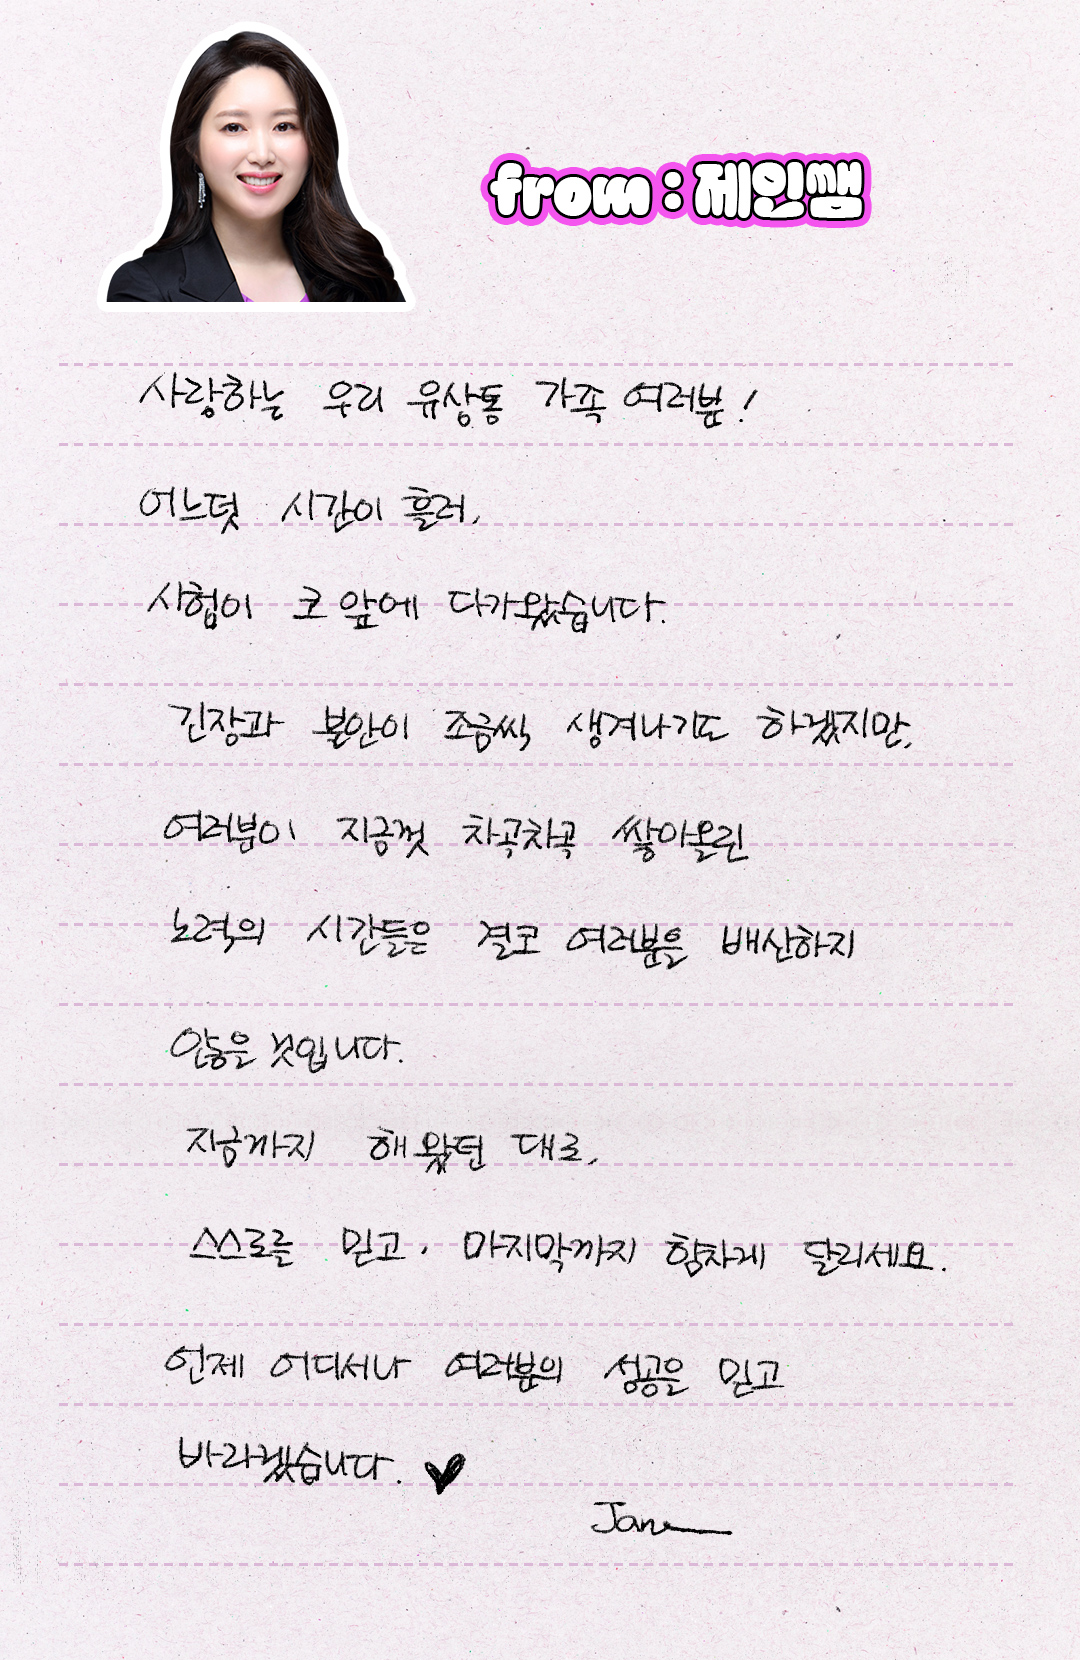 from : 제인쌤
사랑하는 우리 유상통 가족 여러분!
어느덧 시간이 흘러,
시험이 코 앞에 다가왔습니다.
긴장과 불안이 조금씩 생겨나기도 하겠지만,
여러분이 지금껏 차곡차곡 쌓아올린
노력의 시간들은 결코 여러분을 배신하지
않을 것입니다.
지금까지 해왔던 대로,
스스로를 믿고, 마지막까지 힘차게 달리세요.
언제 어디서나 여러분의 성공을 믿고
바라겠습니다. ♥
Jane